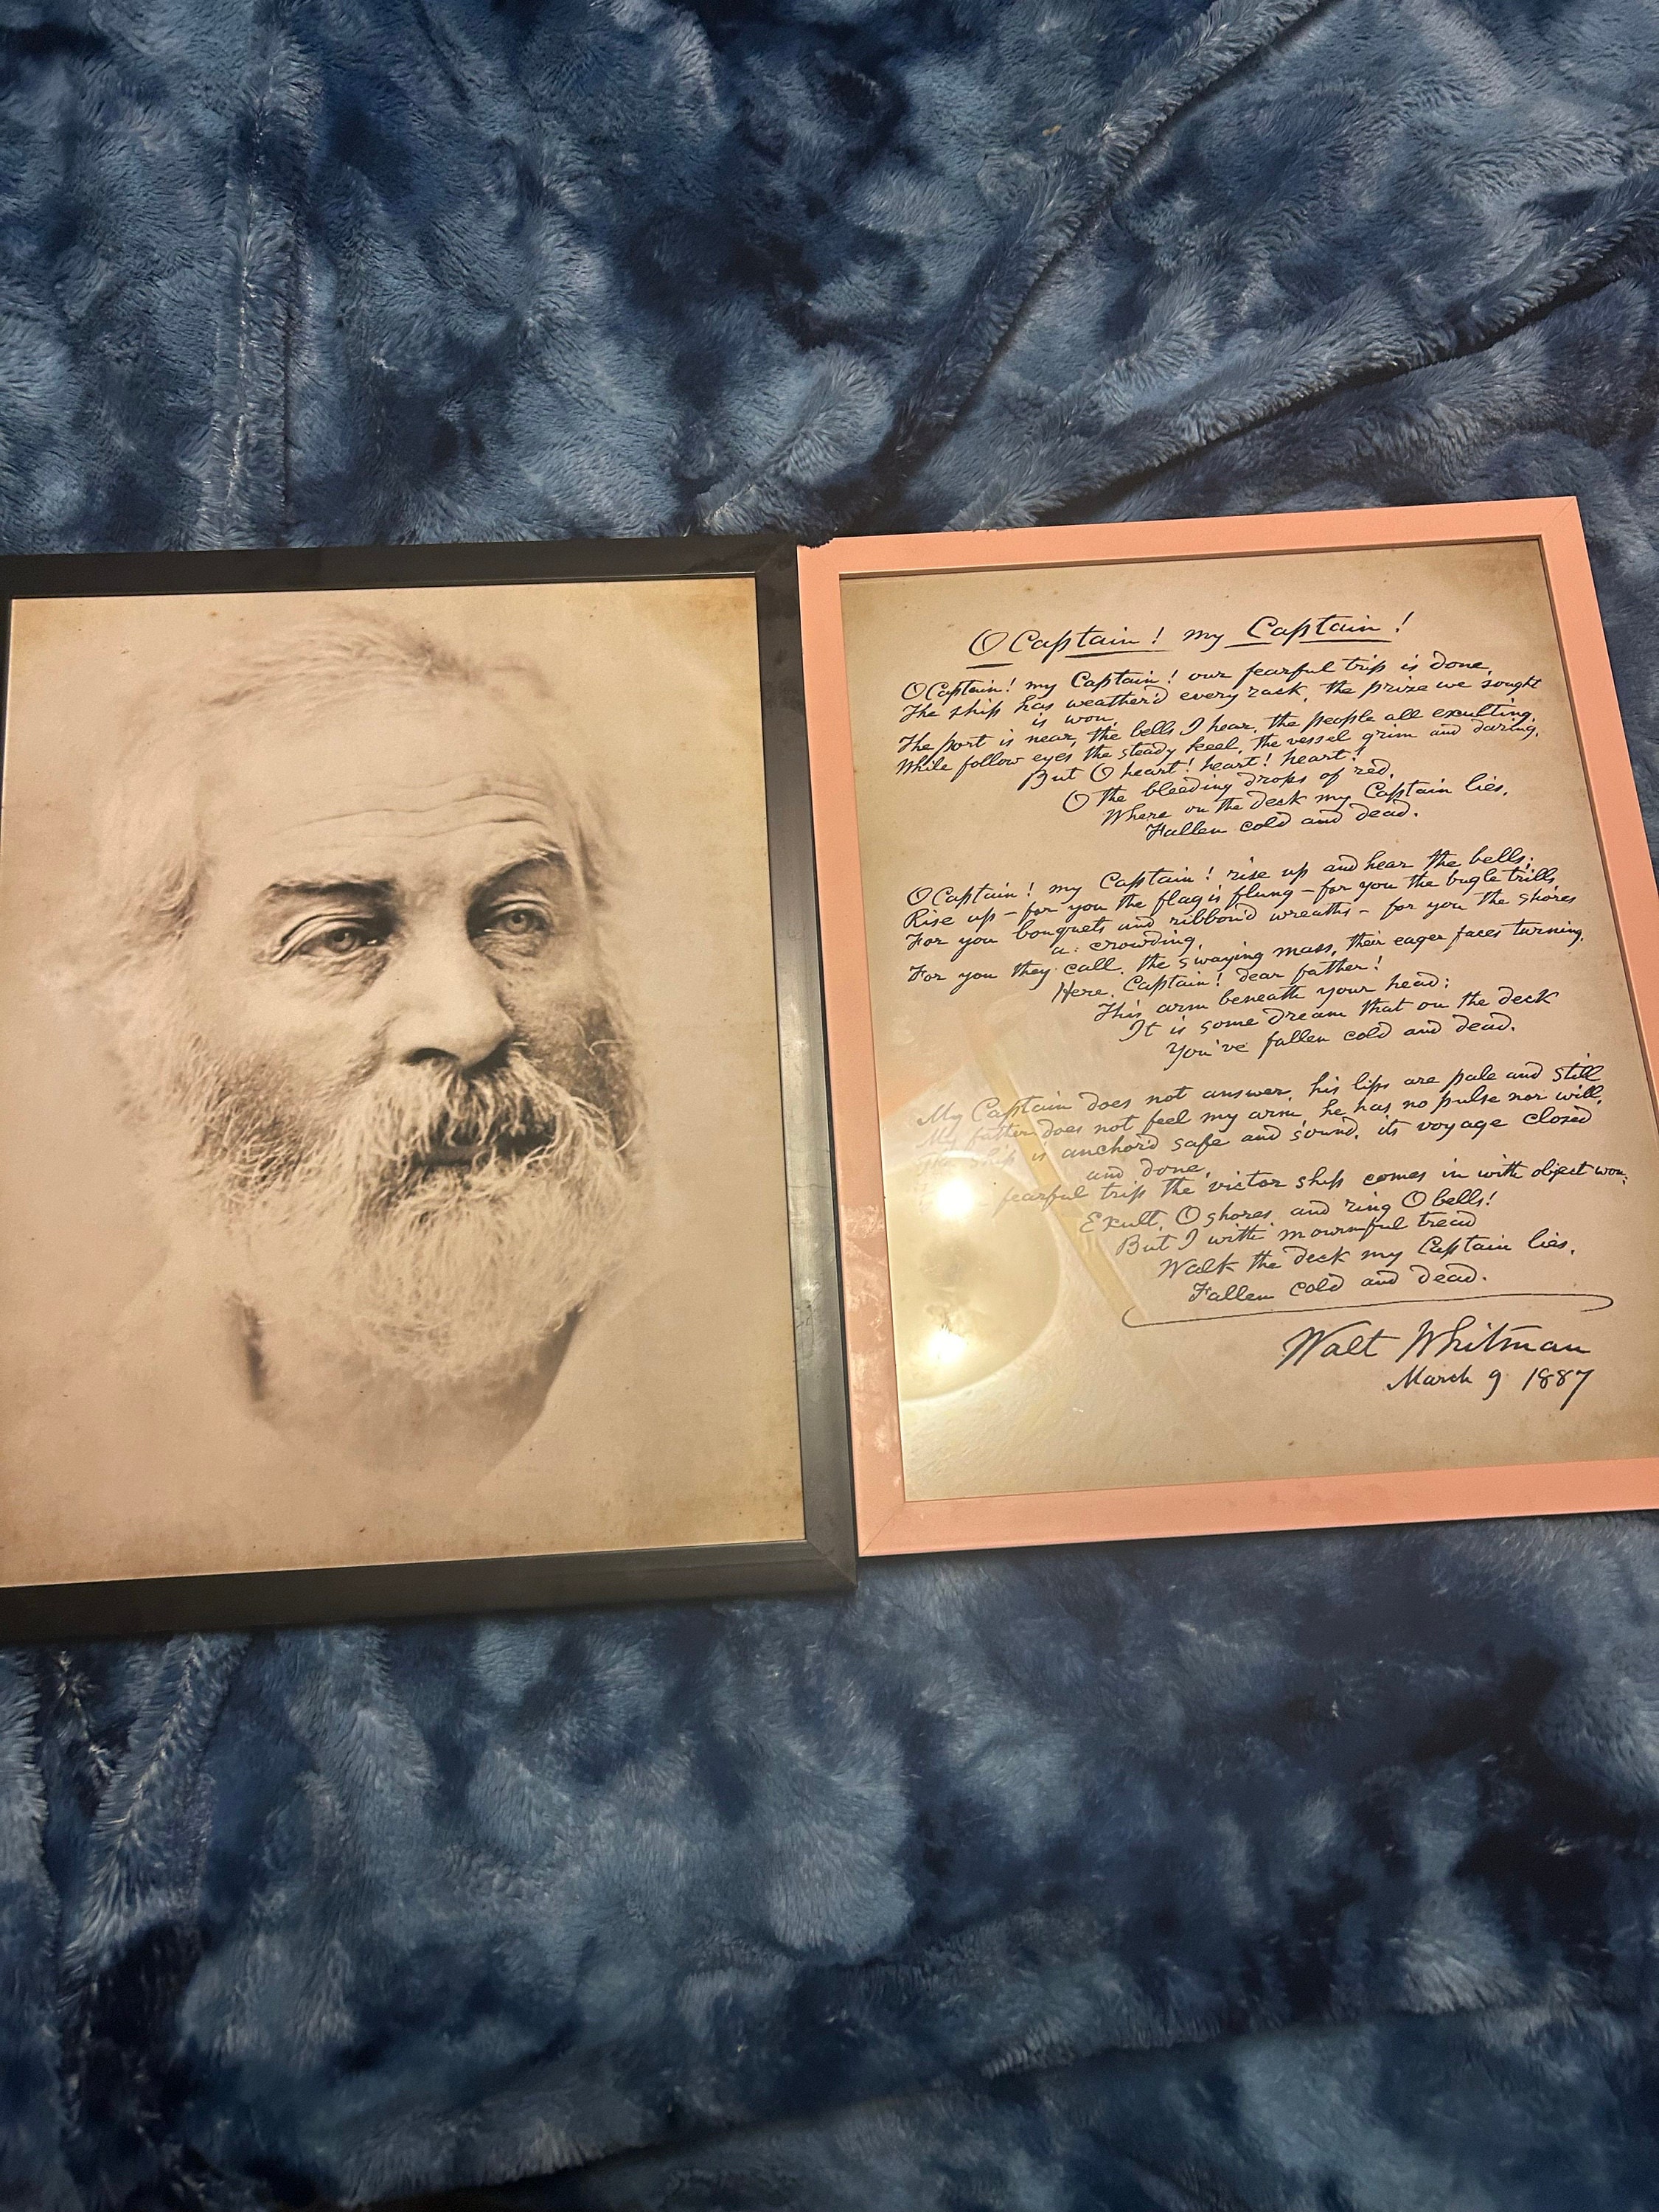 O Captain! my Captain!
O Captain! my Captain! our fearful trip is done,
The ship has weather'd every rack, the prize we sought
is won,
The port is near, the bells I hear, the people all exulting,
While follow eyes the steady keel, the vessel grim and daring,
But O heart! heart! heart!
O the bleeding drops of red,
Where on the deck my Captain lies,
Fallen cold and dead.
O Captain! my Captain! rise up and hear the bells;
Rise up – for you the flag is flung – for you the bugle trills
For you bouquets and ribbon'd wreaths – for you the shores
a: crowding,
For you they call, the swaying mass, their eager faces turning,
Here, Captain! dear father!
This arm beneath your head;
It is some dream that on the deck
You've fallen cold and dead.
My Captain does not answer, his lips are pale and still
My father does not feel my arm, he has no pulse nor will,
The ship is anchor'd safe and sound, its voyage closed
and done,
fearful trip the victor ship comes in with object won;
Exult, O shores, and ring O bells!
But I with mournful tread
Walk the deck my Captain lies,
Fallen cold and dead.
Walt Whitman
March 9 1887